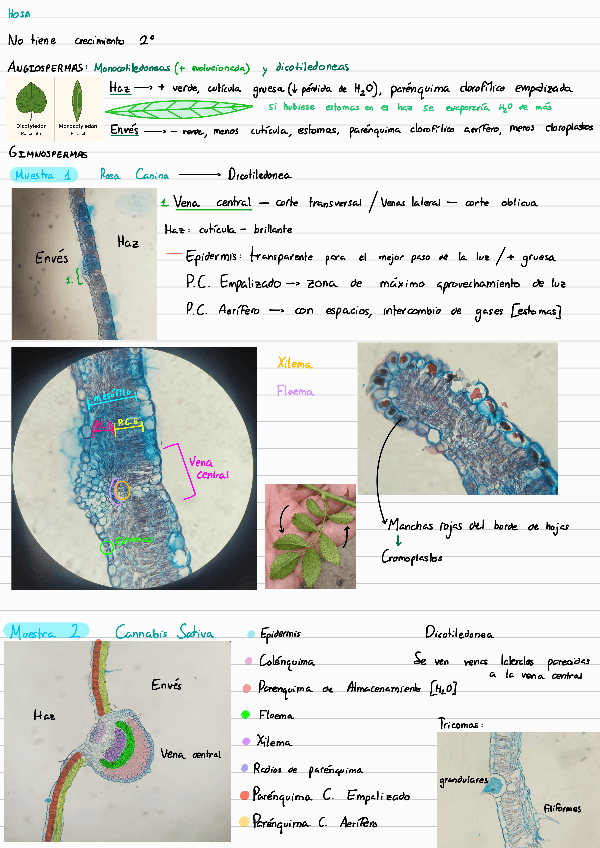 HOJA
No tiene crecimiento 2º
ANGIOSPERMAS: Monocotiledoneas (+ evolucionada) y dicotiledoneas
Haz → + verde, cutícula gruesa (↓ pérdida de H₂O), parénquima clorofílico empalizada
Si hubiese estomas en el haz se evaporería H₂O de más
Dicotyledon Monocotyledon
Envés → - verde, menos cutícula, estomas, parénquima clorofílico aerífero, menos cloroplastos
GIMNOSPERMAS
Muestra 1 Rosa Canina → Dicotiledonea
1. Vena central – corte transversal / Venas lateral – corte oblicua
Haz: cutícula – brillante
Envés Haz
— Epidermis: transparente para el mejor paso de la luz / + gruesa
1.
P.C. Empalizado → zona de máximo aprovechamiento de luz
P.C. Aerífero → con espacios, intercambio de gases [estomas]
Xilema
Floema
Mesófilo
P.C.E
Vena central
Manchas rojas del borde de hojas
↓
Cromoplastos
Muestra 2 Cannabis Sativa
Epidermis
Dicotiledonea
Colénquima
Se ven venas laterales parecidas
a la vena central
Parenquima de Almacenamiento [H₂O]
Envés
Haz
Floema
Tricomas:
Vena central
Xilema
Radios de parénquima
grandulares
Parénquima C. Empalizado
filiformes
Parénquima C. Aerífero